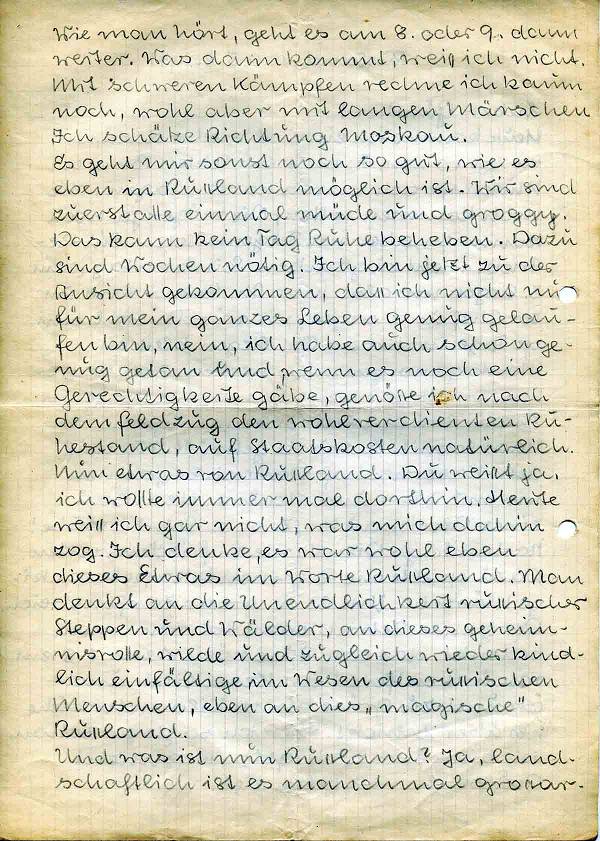 Wie man hört, geht es am 8. oder 9. dann
weiter. Was dann kommt, weiß ich nicht.
Mit schweren Kämpfen rechne ich kaum
noch, wohl aber mit langen Märschen
Ich schätze Richtung Moskau.
Es geht mir sonst noch so gut, wie es
eben in Rußland möglich ist. Wir sind
zuerst alle einmal müde und groggy.
Das kann kein Tag Ruhe beheben. Dazu
sind Wochen nötig. Ich bin jetzt zu der
Ansicht gekommen, daß ich nicht nur
für mein ganzes Leben genug gelau-
fen bin, nein, ich habe auch schon ge-
nug getan. Und wenn es noch eine
Gerechtigkeite gäbe, genöße ich nach
dem Feldzug den wohlverdienten Ru-
hestand, auf Staatskosten natürlich.
Nun etwas von Rußland. Du weißt ja,
ich wollte immer mal dorthin. Heute
weiß ich gar nicht, was mich dahin
zog. Ich denke, es war wohl eben
dieses Etwas im Worte Rußland. Man
denkt an die Unendlichkeit rußischer
Steppen und Wälder, an dieses geheim-
nisvolle, wilde und zugleich wieder kind-
lich einfältige im Wesen des rußischen
Menschen, eben an dies „magische"
Rußland.
Und was ist nun Rußland? Ja, land-
schaftlich ist es manchmal großar-